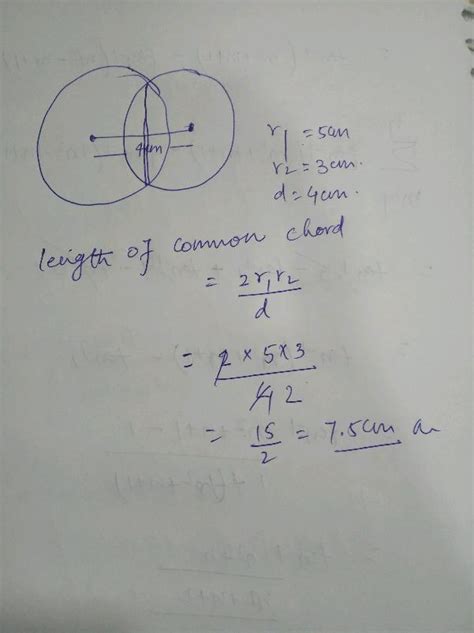 4cm
r₁ = 5cm
r₂ = 3cm.
d = 4cm.
length of common chord
= 2r₁r₂/d
= 2 × 5 × 3 / 4 2
= 15/2 = 7.5cm